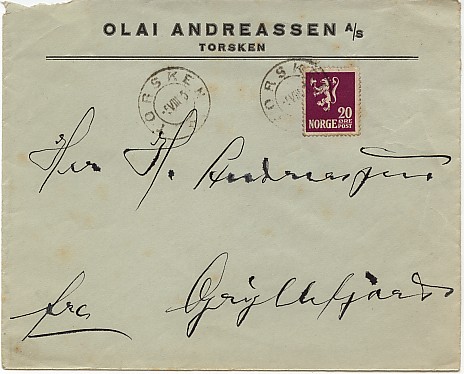 OLAI ANDREASSEN A/S
TORSKEN
TORSKEN
TORSKEN
20
NORGE ØRE
POST
Herr H. Andreassen
fra Gryllefjord